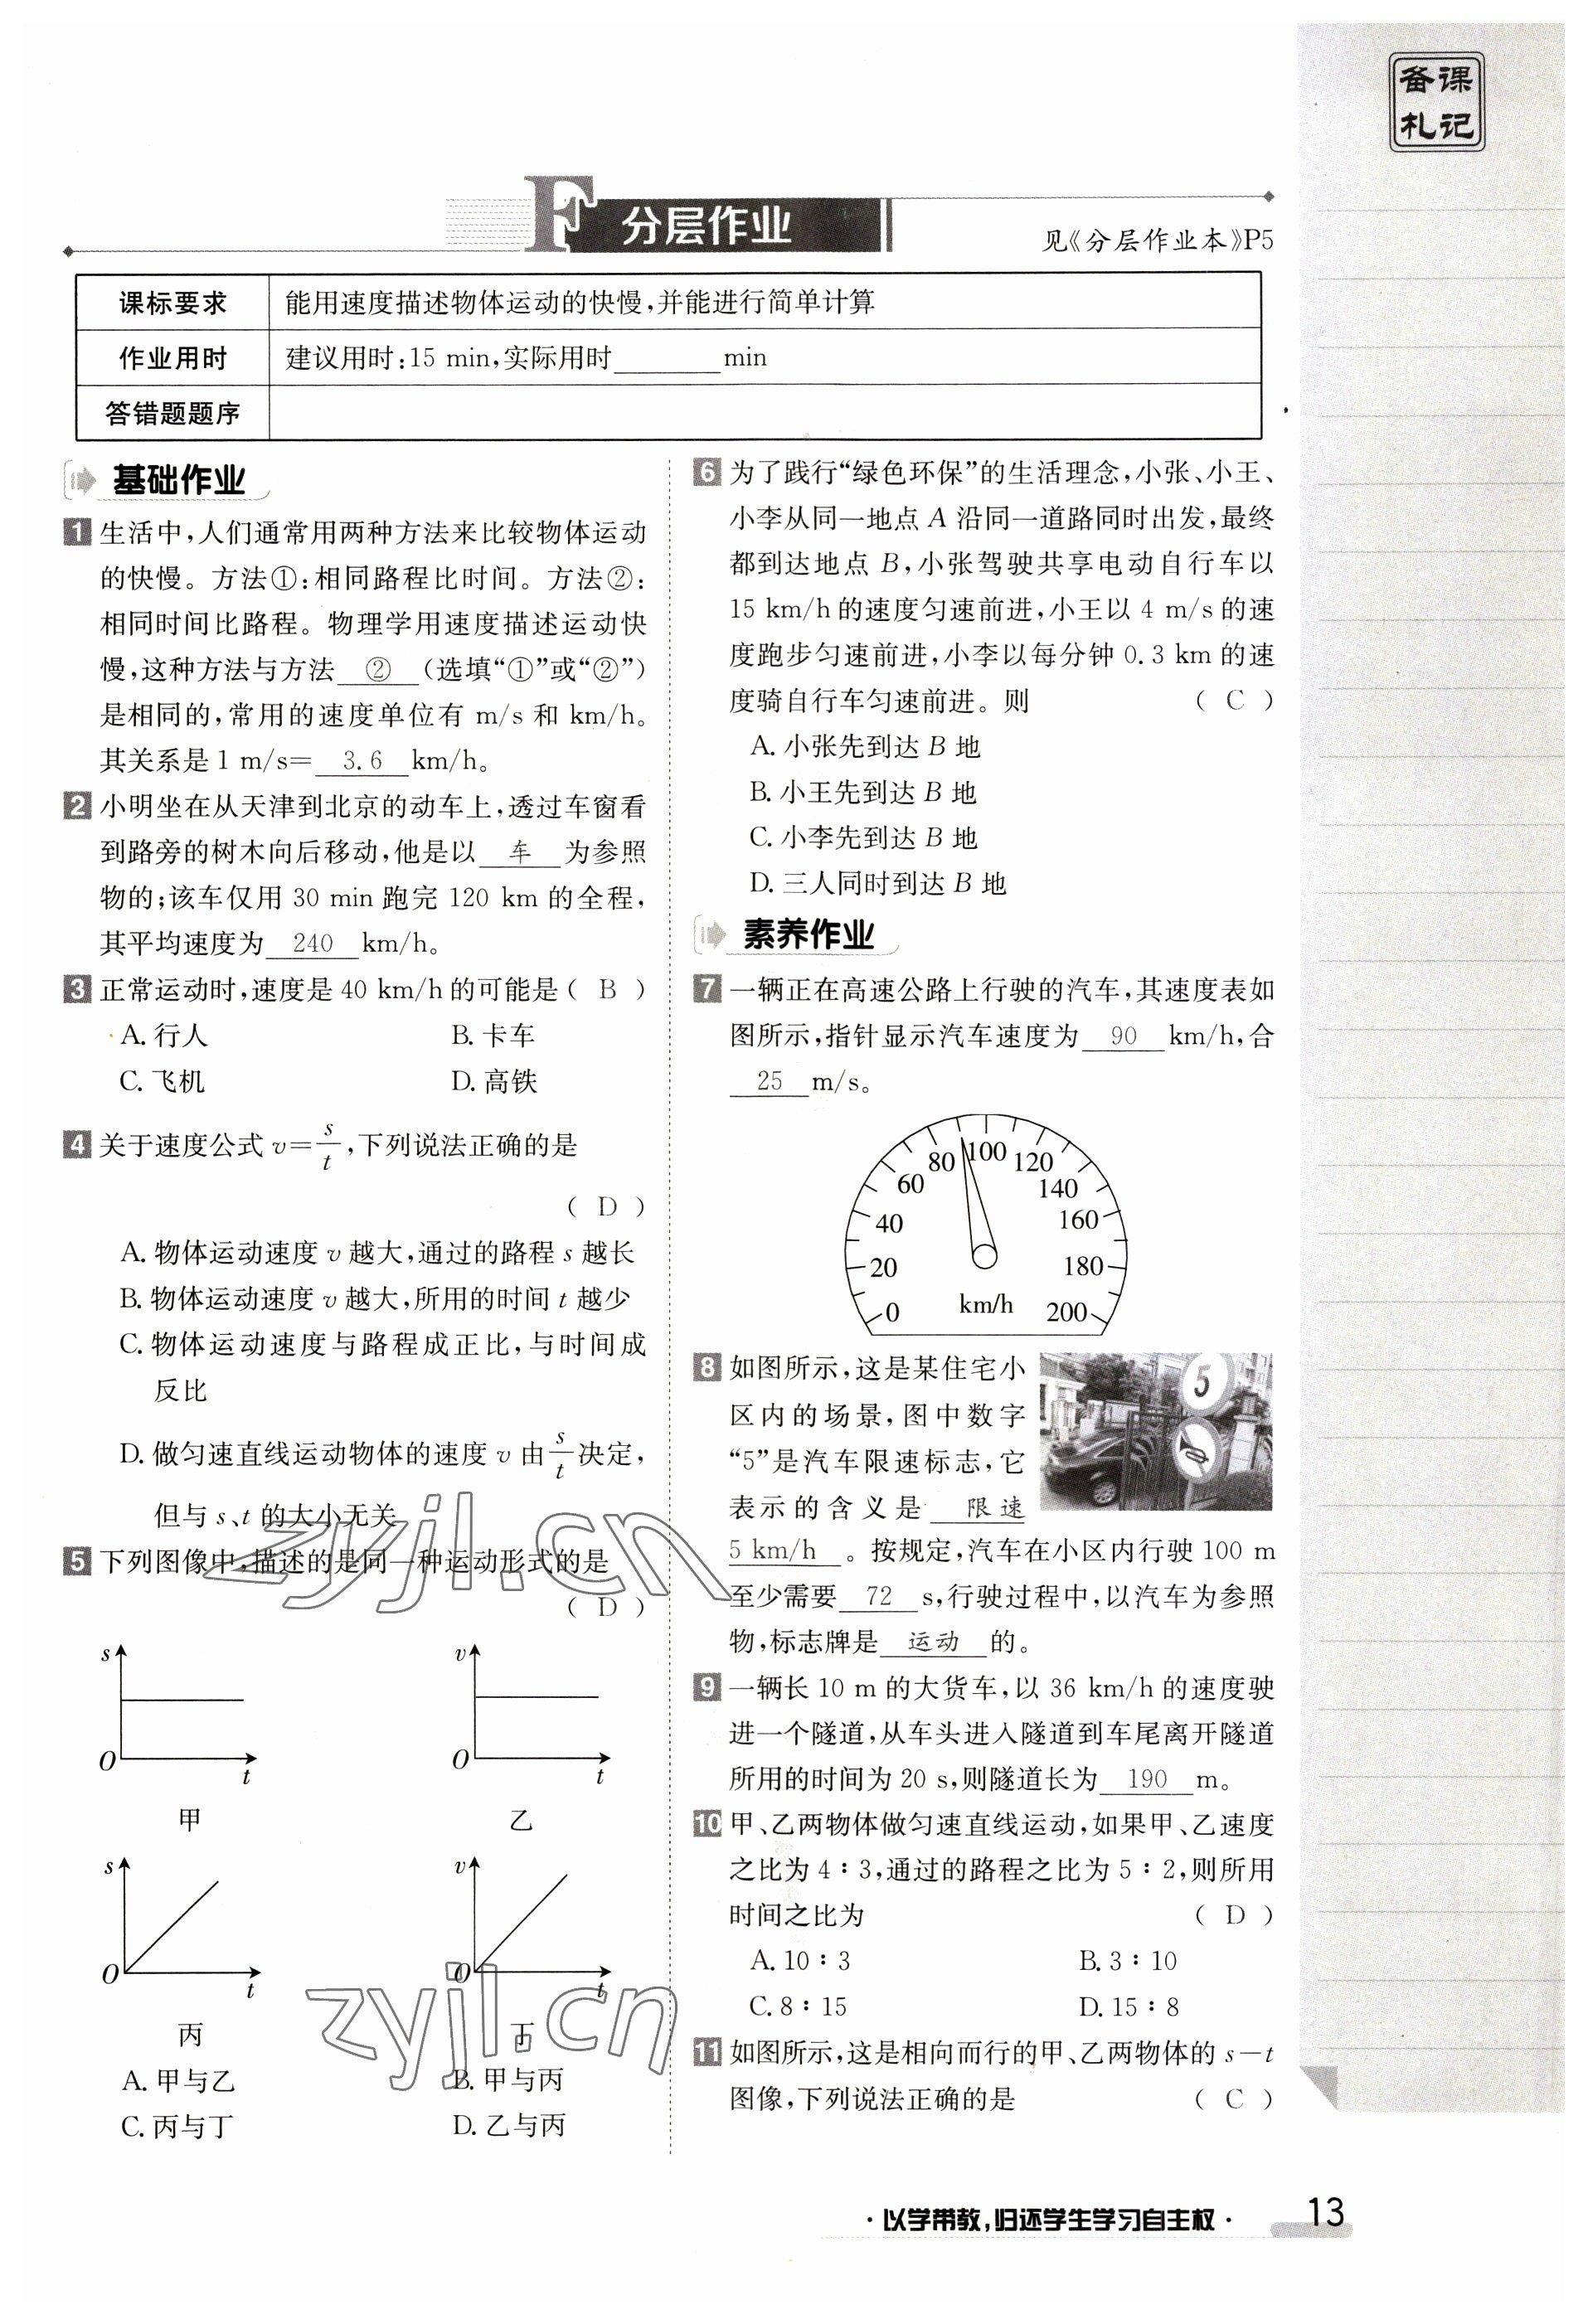 备课
札记
F 分层作业
见《分层作业本》P5
课标要求 能用速度描述物体运动的快慢,并能进行简单计算
作业用时 建议用时:15 min,实际用时________min
答错题题序
基础作业
1 生活中,人们通常用两种方法来比较物体运动
的快慢。方法①:相同路程比时间。方法②:
相同时间比路程。物理学用速度描述运动快
慢,这种方法与方法 ② (选填“①”或“②”)
是相同的,常用的速度单位有 m/s 和 km/h。
其关系是 1 m/s= 3.6 km/h。
2 小明坐在从天津到北京的动车上,透过车窗看
到路旁的树木向后移动,他是以 车 为参照
物的;该车仅用 30 min 跑完 120 km 的全程,
其平均速度为 240 km/h。
3 正常运动时,速度是 40 km/h 的可能是( B )
A. 行人 B. 卡车
C. 飞机 D. 高铁
4 关于速度公式 v=s/t,下列说法正确的是
( D )
A. 物体运动速度 v 越大,通过的路程 s 越长
B. 物体运动速度 v 越大,所用的时间 t 越少
C. 物体运动速度与路程成正比,与时间成
反比
D. 做匀速直线运动物体的速度 v 由 s/t 决定,
但与 s、t 的大小无关
5 下列图像中,描述的是同一种运动形式的是
( D )
s O t
甲
v O t
乙
s O t
丙
v O t
丁
A. 甲与乙 B. 甲与丙
C. 丙与丁 D. 乙与丙
6 为了践行“绿色环保”的生活理念,小张、小王、
小李从同一地点 A 沿同一道路同时出发,最终
都到达地点 B,小张驾驶共享电动自行车以
15 km/h 的速度匀速前进,小王以 4 m/s 的速
度跑步匀速前进,小李以每分钟 0.3 km 的速
度骑自行车匀速前进。则 ( C )
A. 小张先到达 B 地
B. 小王先到达 B 地
C. 小李先到达 B 地
D. 三人同时到达 B 地
素养作业
7 一辆正在高速公路上行驶的汽车,其速度表如
图所示,指针显示汽车速度为 90 km/h,合
25 m/s。
0 20 40 60 80 100 120 140 160 180 200
km/h
8 如图所示,这是某住宅小
区内的场景,图中数字
“5”是汽车限速标志,它
表示的含义是 限速
5 km/h 。按规定,汽车在小区内行驶 100 m
至少需要 72 s,行驶过程中,以汽车为参照
物,标志牌是 运动 的。
5
9 一辆长 10 m 的大货车,以 36 km/h 的速度驶
进一个隧道,从车头进入隧道到车尾离开隧道
所用的时间为 20 s,则隧道长为 190 m。
10 甲、乙两物体做匀速直线运动,如果甲、乙速度
之比为 4∶3,通过的路程之比为 5∶2,则所用
时间之比为 ( D )
A. 10∶3 B. 3∶10
C. 8∶15 D. 15∶8
11 如图所示,这是相向而行的甲、乙两物体的 s-t
图像,下列说法正确的是 ( C )
zyjl.cn
zyjl.cn
·以学带教,归还学生学习自主权·
13